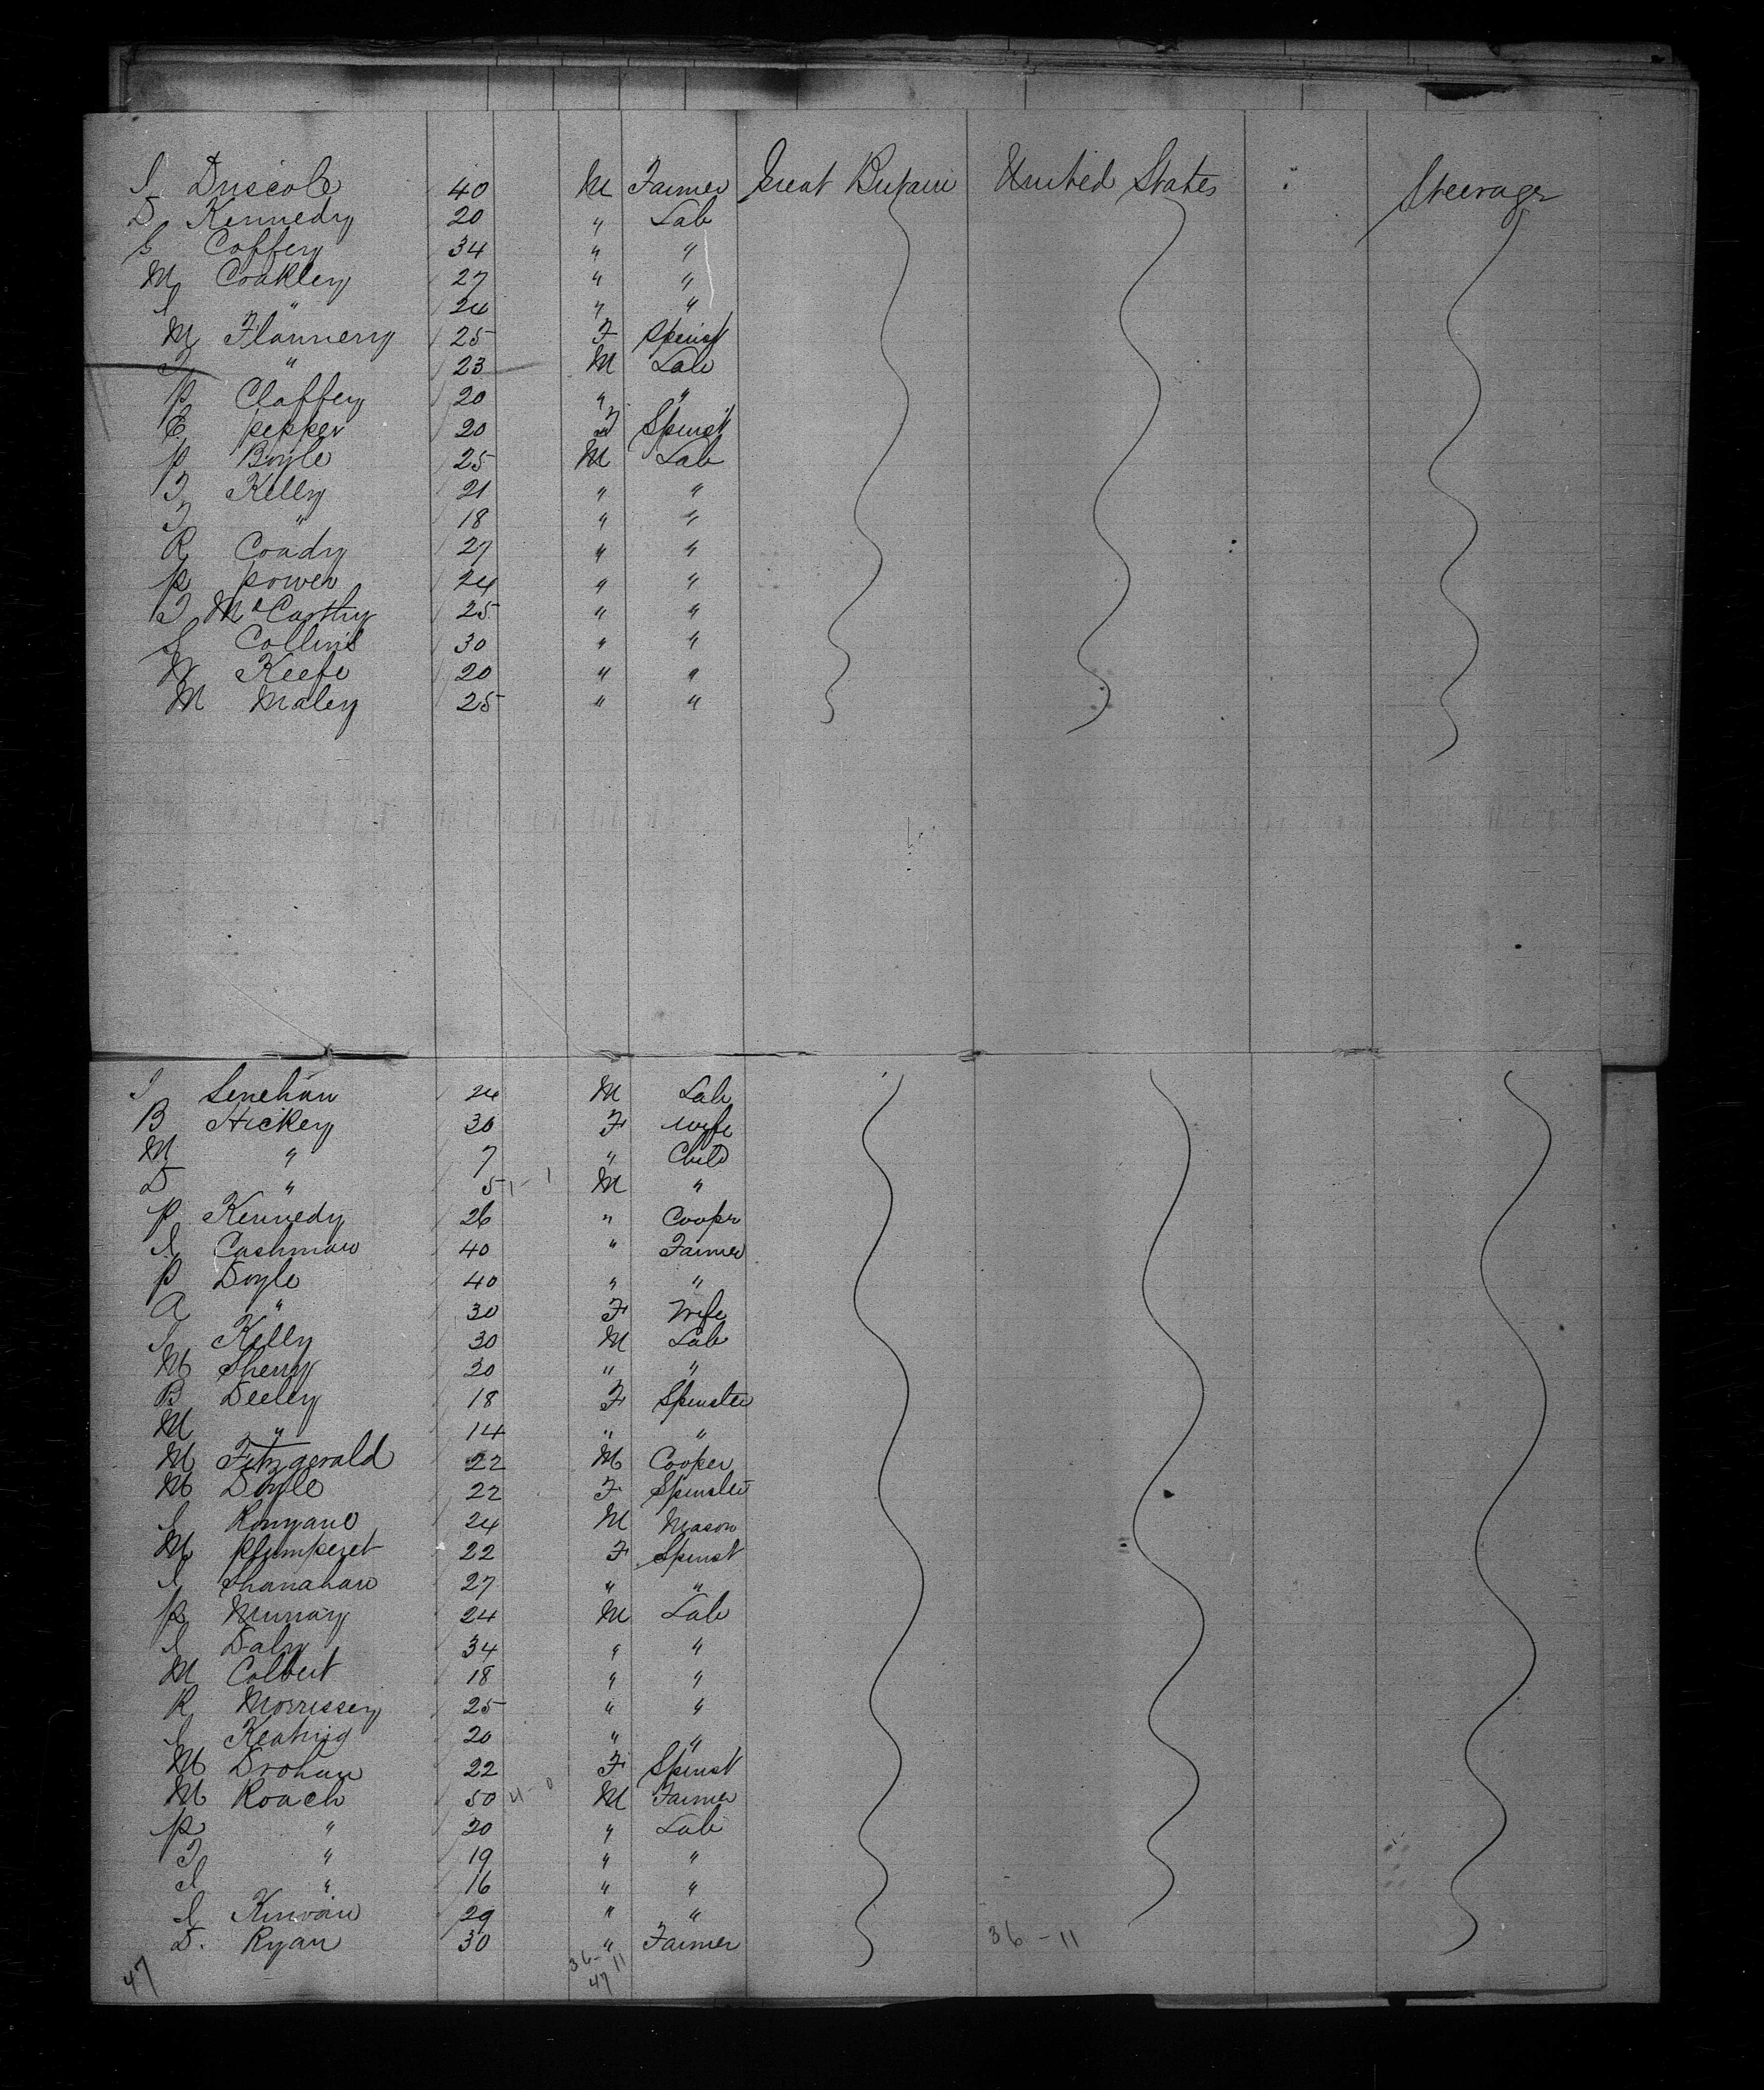 J Driscole 40 M Farmer Great Britain United States Steerage
D Kennedy 20 " Lab
G Coffey 34 " "
M Coakley 27 " "
J " 24 " "
M Flannery 25 F Spinst
T " 23 M Lab
P Claffey 20 " "
E pepper 20 F Spinst
P Boyle 25 M Lab
T Kelly 21 " "
T " 18 " "
R Coady 27 " "
P power 24 " "
T McCarthy 25 " "
J Collins 30 " "
W Keefe 20 " "
M Maley 25 " "
J Lenehan 24 M Lab
B Hickey 30 F Wife
M " 7 " Child
D " 5 1-1 M "
P Kennedy 26 " Coopr
J Cashman 40 " Farmer
P Doyle 40 " "
A " 30 F Wife
J Kelly 30 M Lab
M Sherry 20 " "
B Deeley 18 F Spinster
M " 14 " "
M Fitzgerald 22 M Cooper
M Doyle 22 F Spinster
J 24 M Mason
M 22 F Spinst
J Shanahan 27 " "
P Murray 24 M Lab
J Daly 34 " "
M Colbert 18 " "
R Morrissey 25 " "
J Keating 20 " "
M Drohan 22 F Spinst
M Roach 50 M Farmer
P " 20 " Lab
T " 19 " "
J " 16 " "
J Kirwan 29 " "
D. Ryan 30 " Farmer 36-11
36-11
47 47